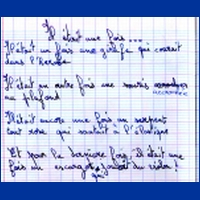 Il était une fois ...
Il était un fois une girafe qui courait
dans l'herbe
Il était un autre fois une souris
accrochée
au plafond
Il était encore une fois un serpent
tout rose qui sautait à l'élastique
Et pour la dernière fois, il était une
fois un escargot qui jouait du violon !